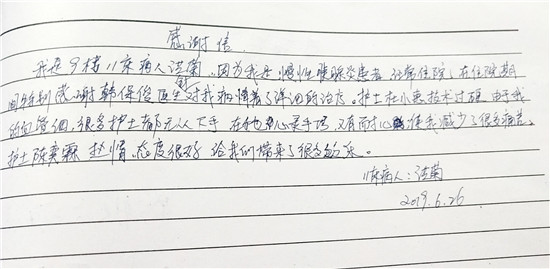 感谢信
我是9楼11床病人洪菊,因为我是慢性胰腺炎患者 经常住院,在住院期
间特别感谢韩保俊医生对我病情着了详细的治疗。护士杜小燕技术过硬 由于我
的血管细,很多护士都无从下手 在他心灵手巧 又有耐心 使我减少了很多痛苦。
护士陈奕霖 赵娟 态度很好 给我们带来了很多的乐。
11床病人:洪菊
2019.6.26